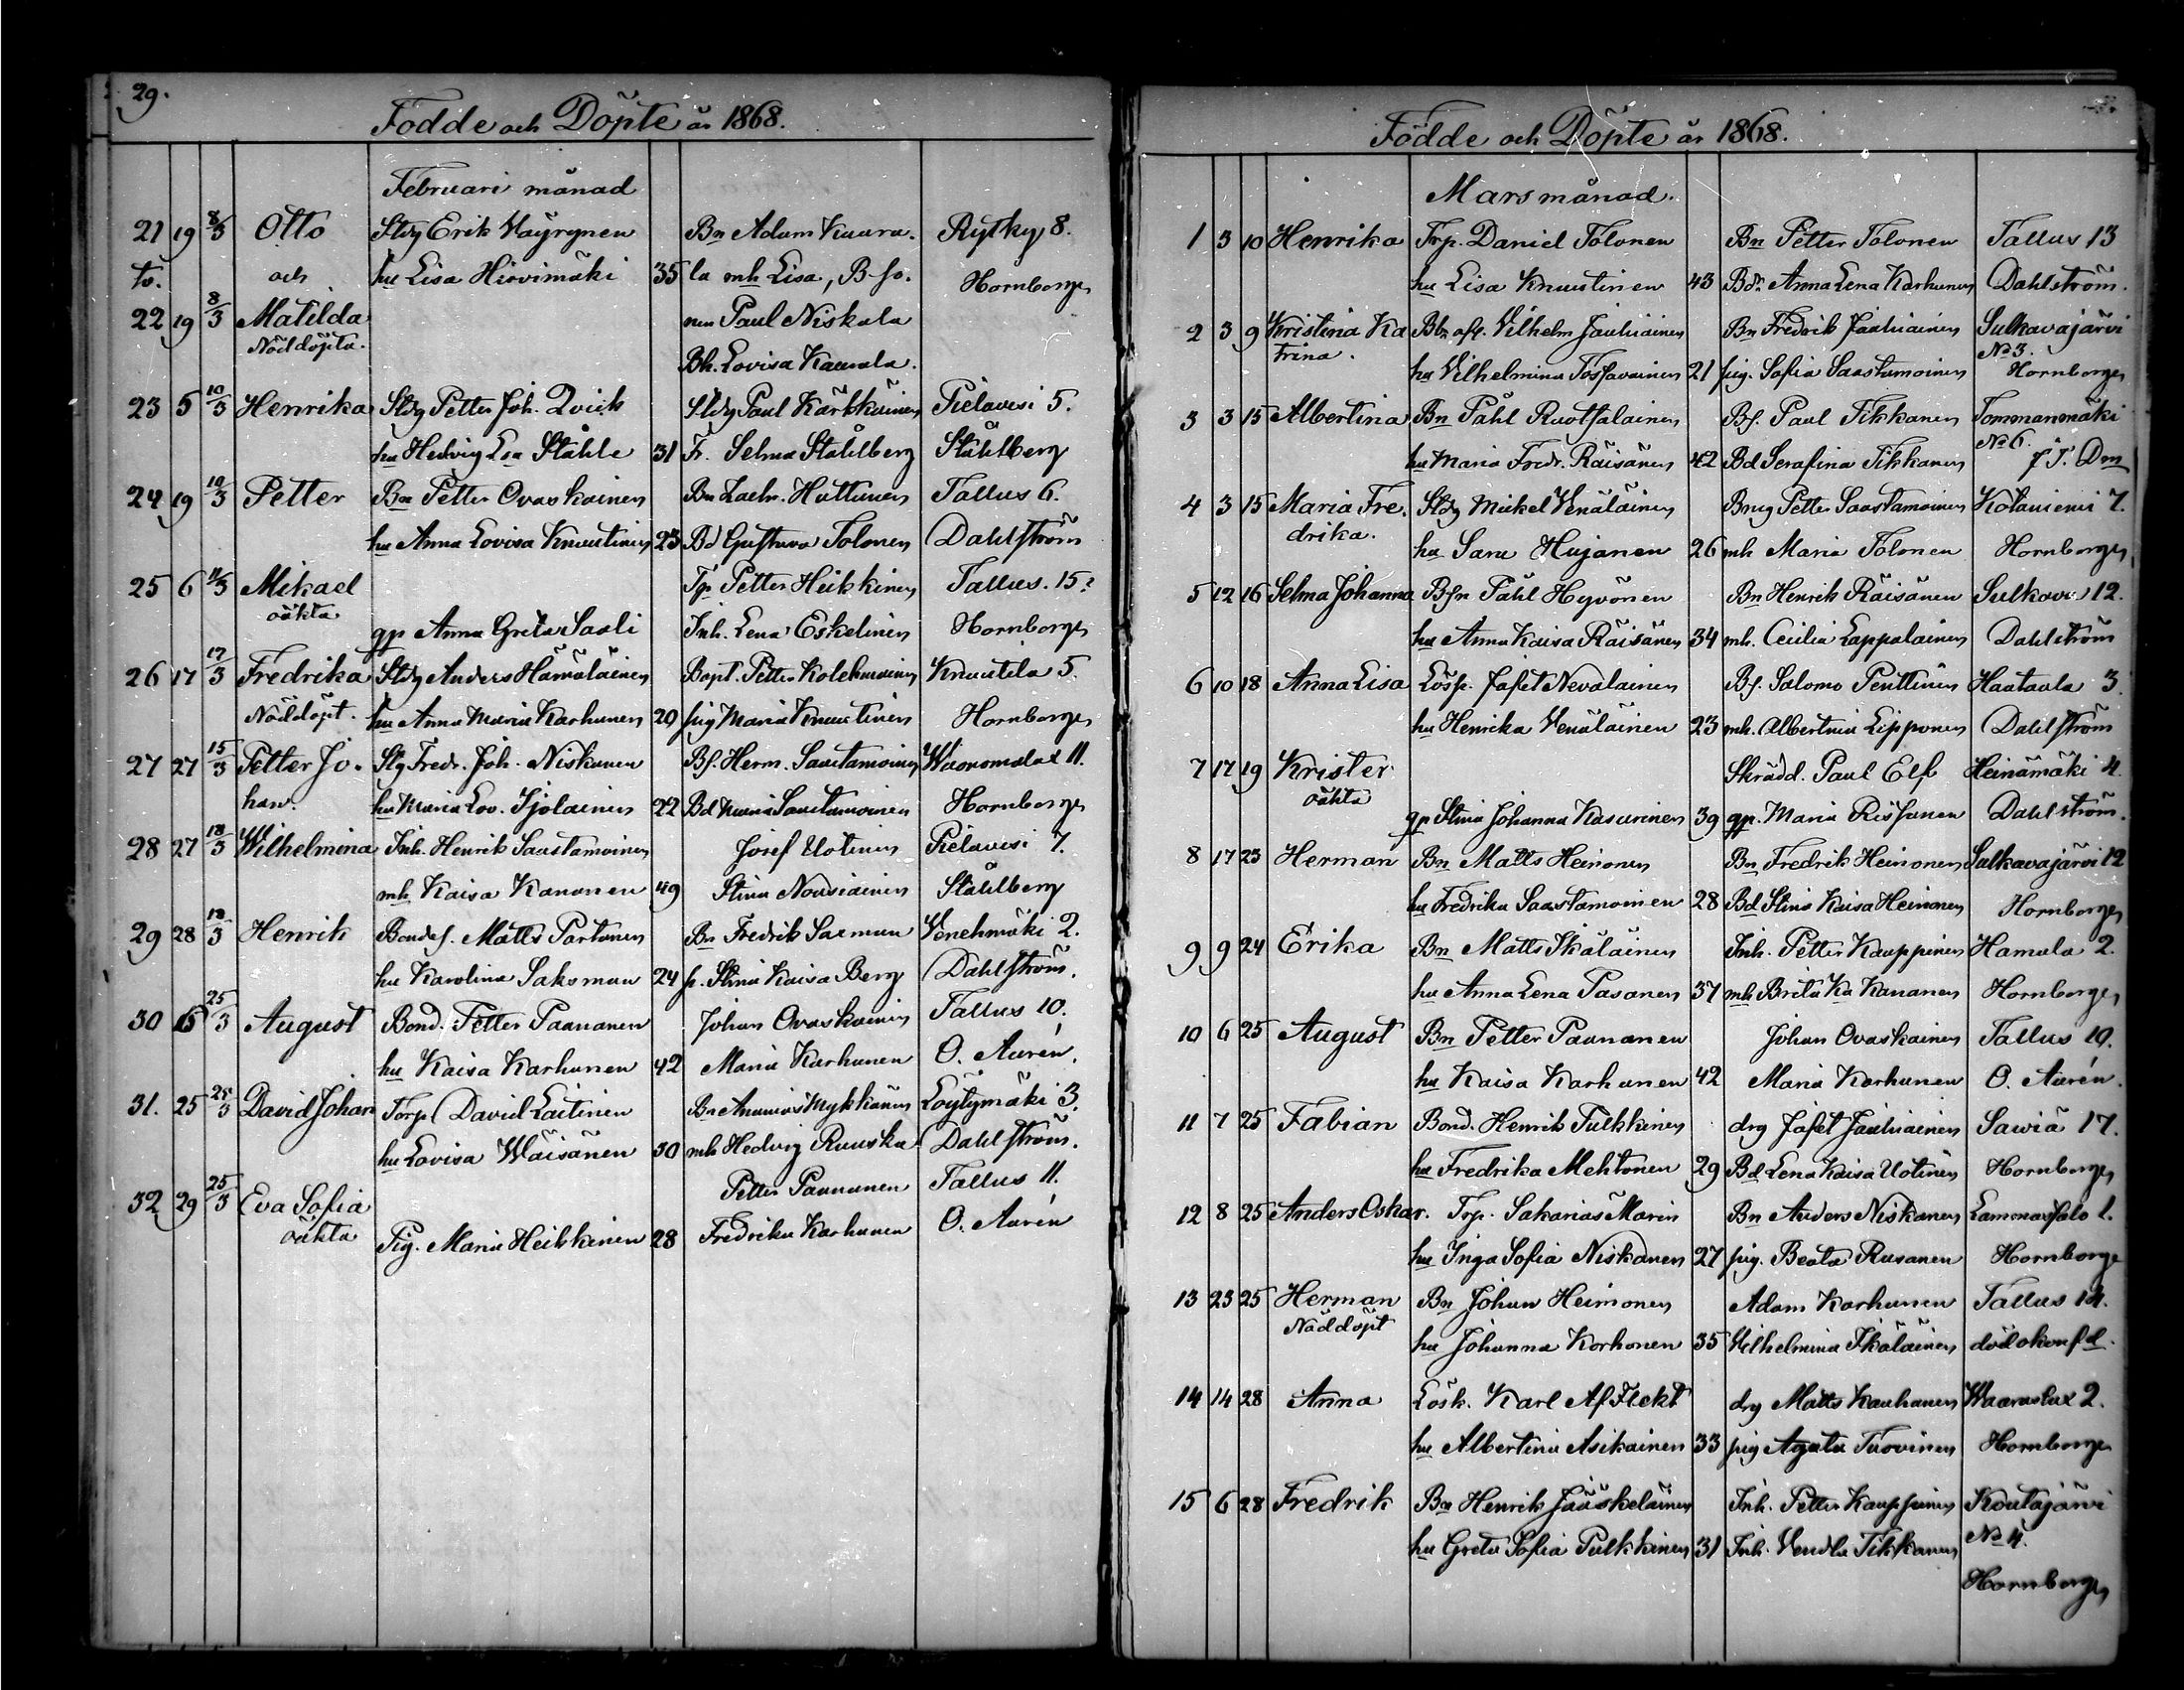 29.
Födde och Döpte år 1868.
Februari månad
21 19 8/3 Otto Stdg Erik Väyrynen Bn Adam Kaura- Rytky 8.
tv. och hu Lisa Hirvimäki 35 la mh Lisa, B so- Hornborg
22 19 8/3 Matilda nen Paul Niskala
Nöddöpta. Bh. Lovisa Kaurala.
23 5 10/3 Henrika Stdg Petter Joh. Qvick Stdg Paul Kärkkäinen Pielavesi 5.
hu Hedvig Lsa Ståhle 31 Fr. Selma Ståhlberg Ståhlberg
24 19 10/3 Petter Bn Petter Ovaskainen Bn Zachr. Huttunen Tallus 6.
hu Anna Lovisa Knuutinen 23 Bd Gustava Tolonen Dahlström
25 6 11/3 Mikael Tp Petter Heikkinen Tallus. 15
oäkta gp Anna Greta Saali Inh. Lena Eskelinen Hornborg
26 17 17/3 Fredrika Stdg Anders Hämäläinen Bapt. Petter Kolehmainen Knuutila 5.
Nöddöpt. hu Anna Maria Karhunen 20 pig Maria Knuutinen Hornborg
27 27 15/3 Petter Jo- Stg Fredr. Joh. Niskanen Bs. Herm. Saastamoinen 11.
han. hu Maria Lov. Tjolainen 22 Bd Maria Saastamoinen Hornborg
28 27 18/3 Wilhelmina Inh. Henrik Saastamoinen Josef Uotinen Pielavesi 7.
mh Kaisa Kananen 49 Stina Nousiainen Ståhlberg
29 28 18/3 Henrik Bondes. Matts Partanen Bn Fredrik Saxman Venehmäki 2.
hu Karolina Saksman 24 p. Stina Kaisa Berg Dahlström.
30 15 25/3 August Bond. Petter Paananen Johan Ovaskainen Tallus 10.
hu Kaisa Karhunen 42 Maria Karhunen O. Aurén.
31. 25 25/3 David Johan Torp David Laitinen Bn Ananias Mykkänen Löytymäki 3.
hu Lovisa Wäisänen 30 mh Hedvig Ruuska Dahlström.
32 29 25/3 Eva Sofia Petter Paananen Tallus 11.
oäkta Pig. Maria Heikkinen 28 Fredrika Karhunen O. Aurén
Födde och Döpte år 1868.
Mars månad.
1 3 10 Henrika Trp. Daniel Tolonen Bn Petter Tolonen Tallus 13
hu Lisa Knuutinen 43 Bdr Anna Lena Karhunen Dahlström.
2 3 9 Kristina Ka Vilhelm Jauhiainen Bn Fredrik Jauhiainen Sulkavajärvi
trina. No 3.
hu Vilhelmina Tossavainen 21 pig. Sofia Saastamoinen Hornborg
3 3 15 Albertina Bn Påhl Ruotsalainen Bs. Paul Tikkanen Tommanmäki
No 6.
hu Maria Fredr. Räisänen 42 Bd Serafina Tikkanen f. J. Dm
4 3 15 Maria Fre- Stdg Mickel Venäläinen Brug Petter Saastamoinen Kotaniemi 7.
drika. hu Sara Hujanen 26 mh Maria Tolonen Hornborg
5 12 16 Selma Johanna Bsn Påhl Hyvönen Bn Henrik Räisänen Sulkava 12.
hu Anna Kaisa Räisänen 34 mh. Cecilia Lappalainen Dahlström
6 10 18 Anna Lisa Lösk. Jafet Nevalainen Bs. Salomo Penttinen Haataala 3.
hu Henrika Venäläinen 23 mh. Albertina Lipponen Dahlström
7 17 19 Krister Skrädd. Paul Elf Heinämäki 4.
oäkta gp Stina Johanna Kasurinen 39 gp. Maria Rissanen Dahlström.
8 17 23 Herman Bn Matts Heinonen Bn Fredrik Heinonen Sulkavajärvi 12
hu Fredrika Saastamoinen 28 Bd Stina Kaisa Heinonen Hornborg
9 9 24 Erika Bn Matts Ikäläinen Inh. Petter Kauppinen Hamula 2.
hu Anna Lena Pasanen 37 mh Brita Ka Kananen Hornborg
10 6 25 August Bn Petter Paananen Johan Ovaskainen Tallus 10.
hu Kaisa Karhunen 42 Maria Karhunen O. Aurén.
11 7 25 Fabian Bond. Henrik Pulkkinen drg Jafet Jauhiainen Sawiä 17.
hu Fredrika Mehtonen 29 Bd Lena Kaisa Uotinen Hornborg
12 8 25 Anders Oskar. Trp. Sakarias Marin Bn Anders Niskanen 1.
hu Inga Sofia Niskanen 27 pig. Beata Rusanen Hornborg
13 23 25 Herman Bn Johan Heimonen Adam Karhunen Tallus 14.
Nöddöpt hu Johanna Korhonen 35 Vilhelmina Ikäläinen död okonfd.
14 14 28 Anna Lösk. Karl Af Flekt drg Matts Kauhanen Waaraslax 2.
hu Albertina Asikainen 33 pig Agata Tuovinen Hornborg
15 6 28 Fredrik Bn Henrik Jääskeläinen Inh. Petter Kauppinen Koutajärvi
hu Greta Sofia Pulkkinen 31 Inh. Vendla Tikkanen No 4.
Hornborg